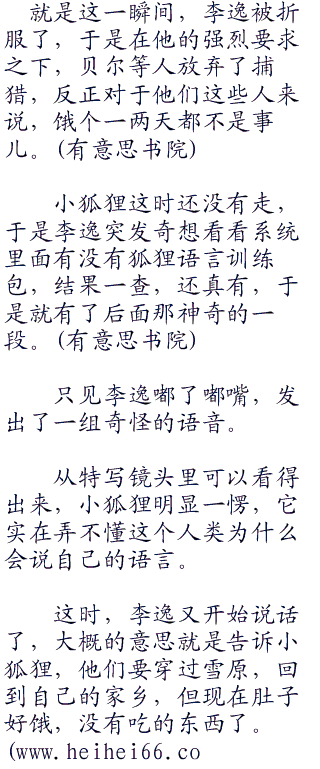 就是这一瞬间，李逸被折
服了，于是在他的强烈要求
之下，贝尔等人放弃了捕
猎，反正对于他们这些人来
说，饿个一两天都不是事
儿。(有意思书院)
小狐狸这时还没有走，
于是李逸突发奇想看看系统
里面有没有狐狸语言训练
包，结果一查，还真有，于
是就有了后面那神奇的一
段。(有意思书院)
只见李逸嘟了嘟嘴，发
出了一组奇怪的语音。
从特写镜头里可以看得
出来，小狐狸明显一愣，它
实在弄不懂这个人类为什么
会说自己的语言。
这时，李逸又开始说话
了，大概的意思就是告诉小
狐狸，他们要穿过雪原，回
到自己的家乡，但现在肚子
好饿，没有吃的东西了。
(www.heihei66.co